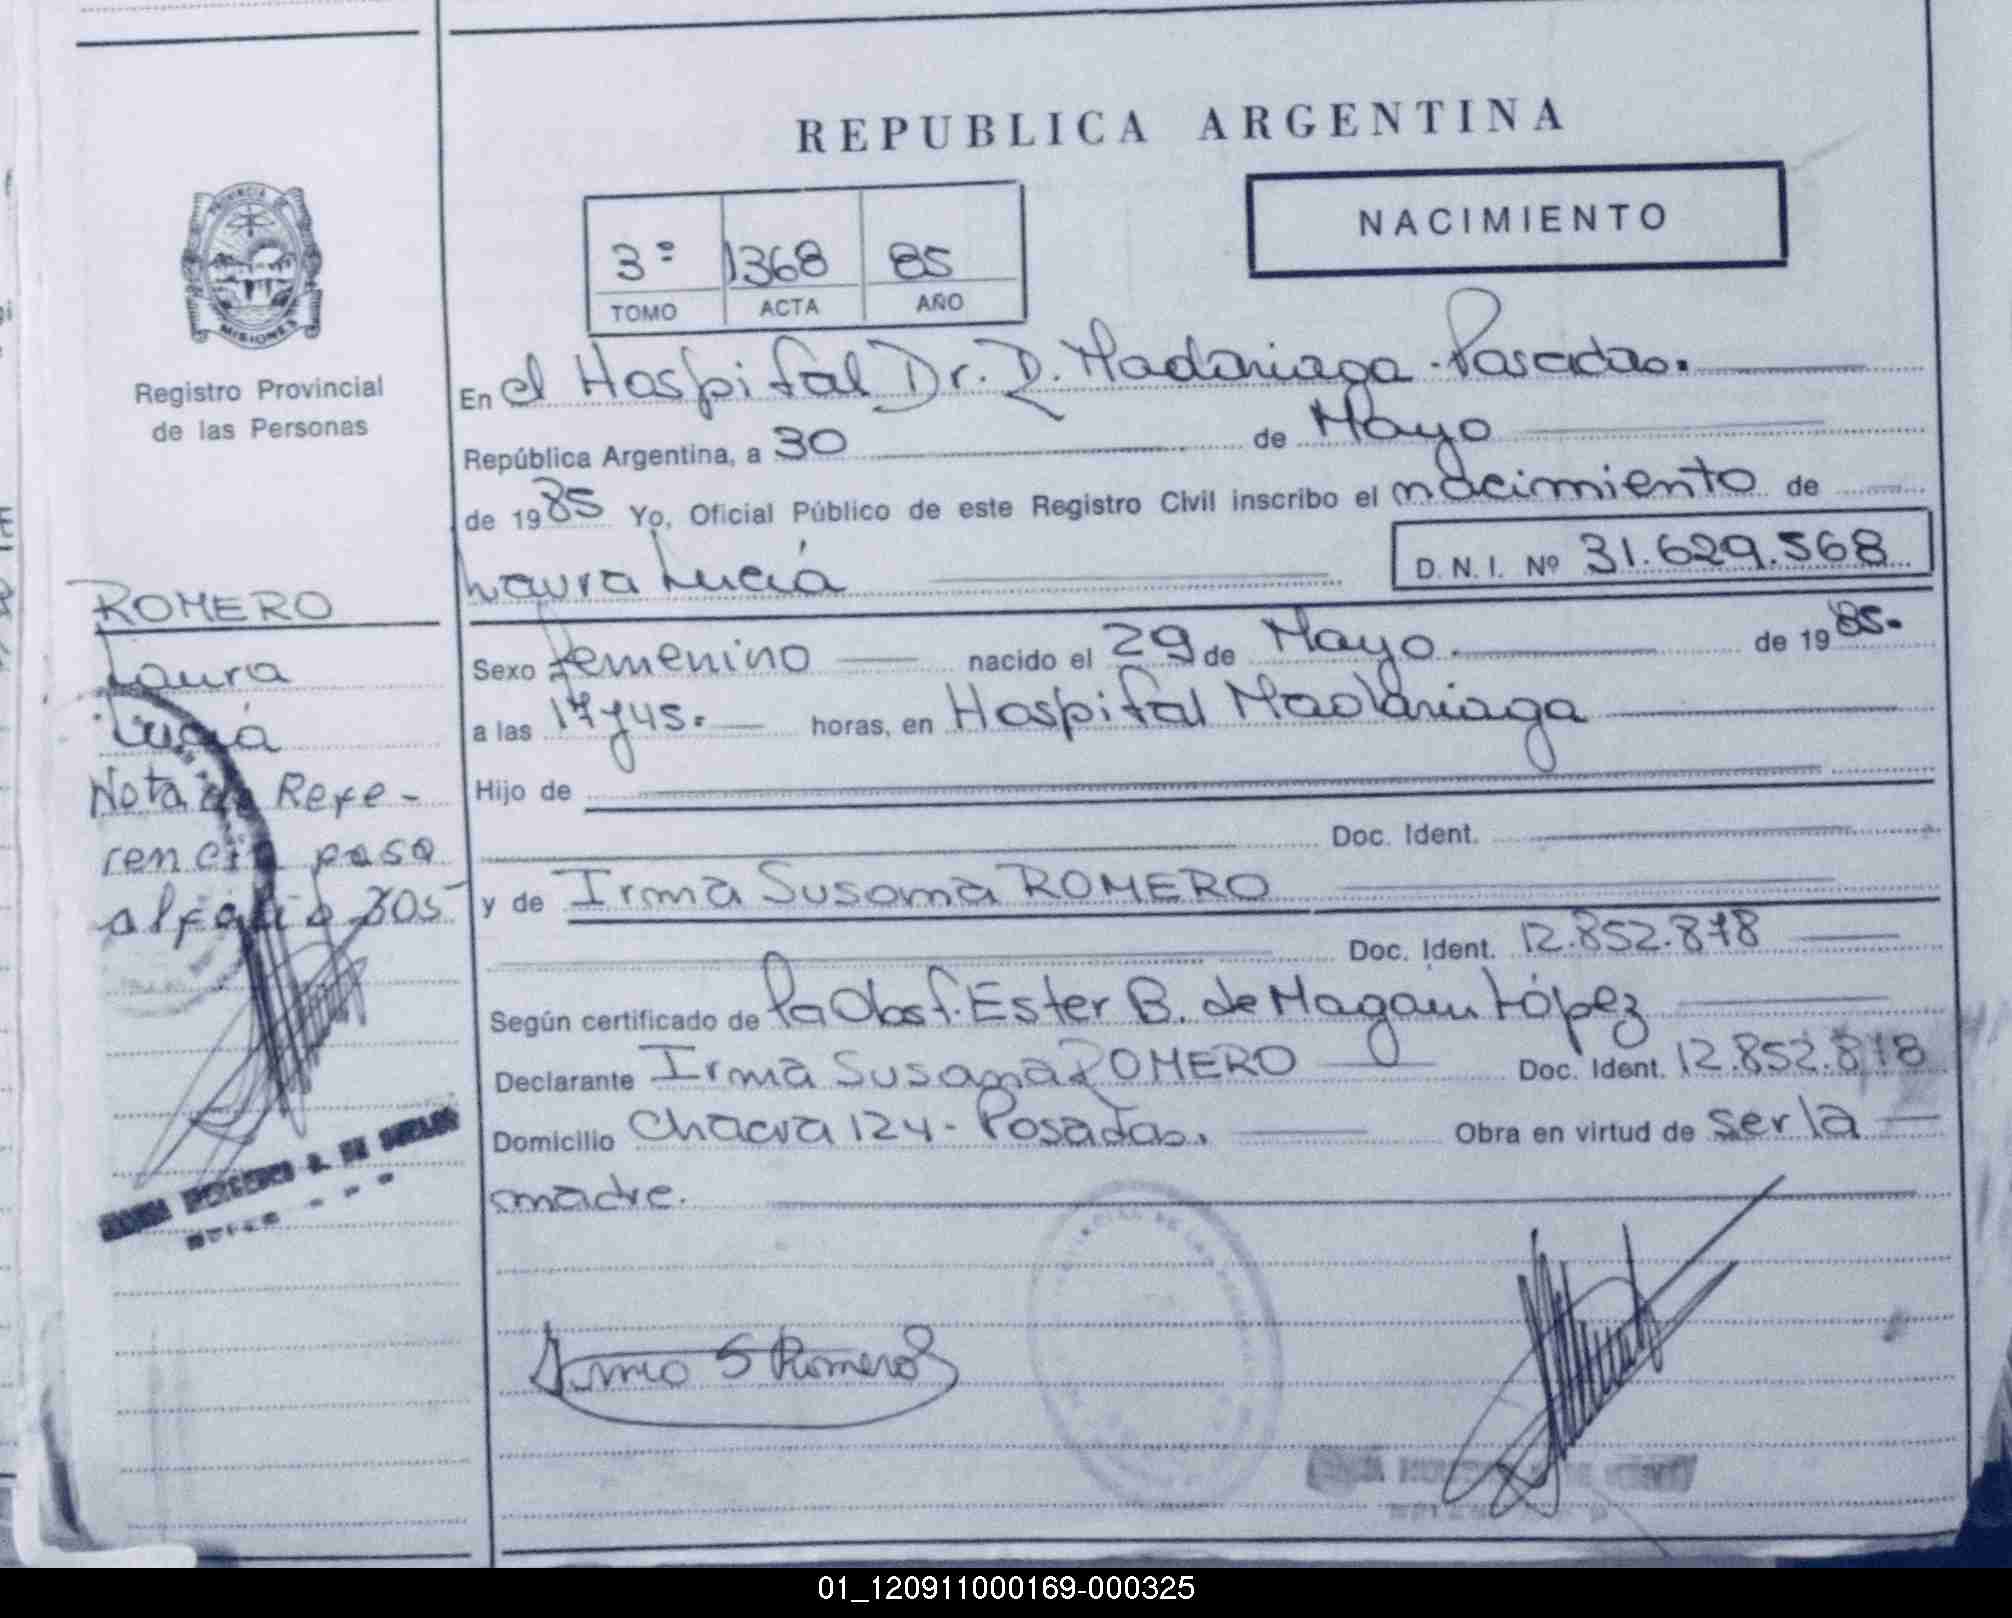 REPUBLICA ARGENTINA
NACIMIENTO
3º 1368 85
TOMO ACTA AÑO
PROVINCIA DE
MISIONES
Registro Provincial
de las Personas
ROMERO
Laura
Lucía
Nota de Refe-
rencia pasa
al folio 305
En el Hospital Dr. R. Madariaga - Posadas.
República Argentina, a 30 de Mayo
de 1985 Yo, Oficial Público de este Registro Civil inscribo el nacimiento de
Laura Lucía D. N. I. Nº 31.629.568
Sexo femenino nacido el 29 de Mayo de 1985.
a las 17 y 45. horas, en Hospital Madariaga
Hijo de
Doc. Ident.
y de Irma Susana ROMERO
Doc. Ident. 12.852.878
Según certificado de la Obst. Ester B. de López
Declarante Irma Susana ROMERO Doc. Ident. 12.852.878
Domicilio Chacra 124 - Posadas. Obra en virtud de ser la
madre.
Irma S Romero
01_120911000169-000325